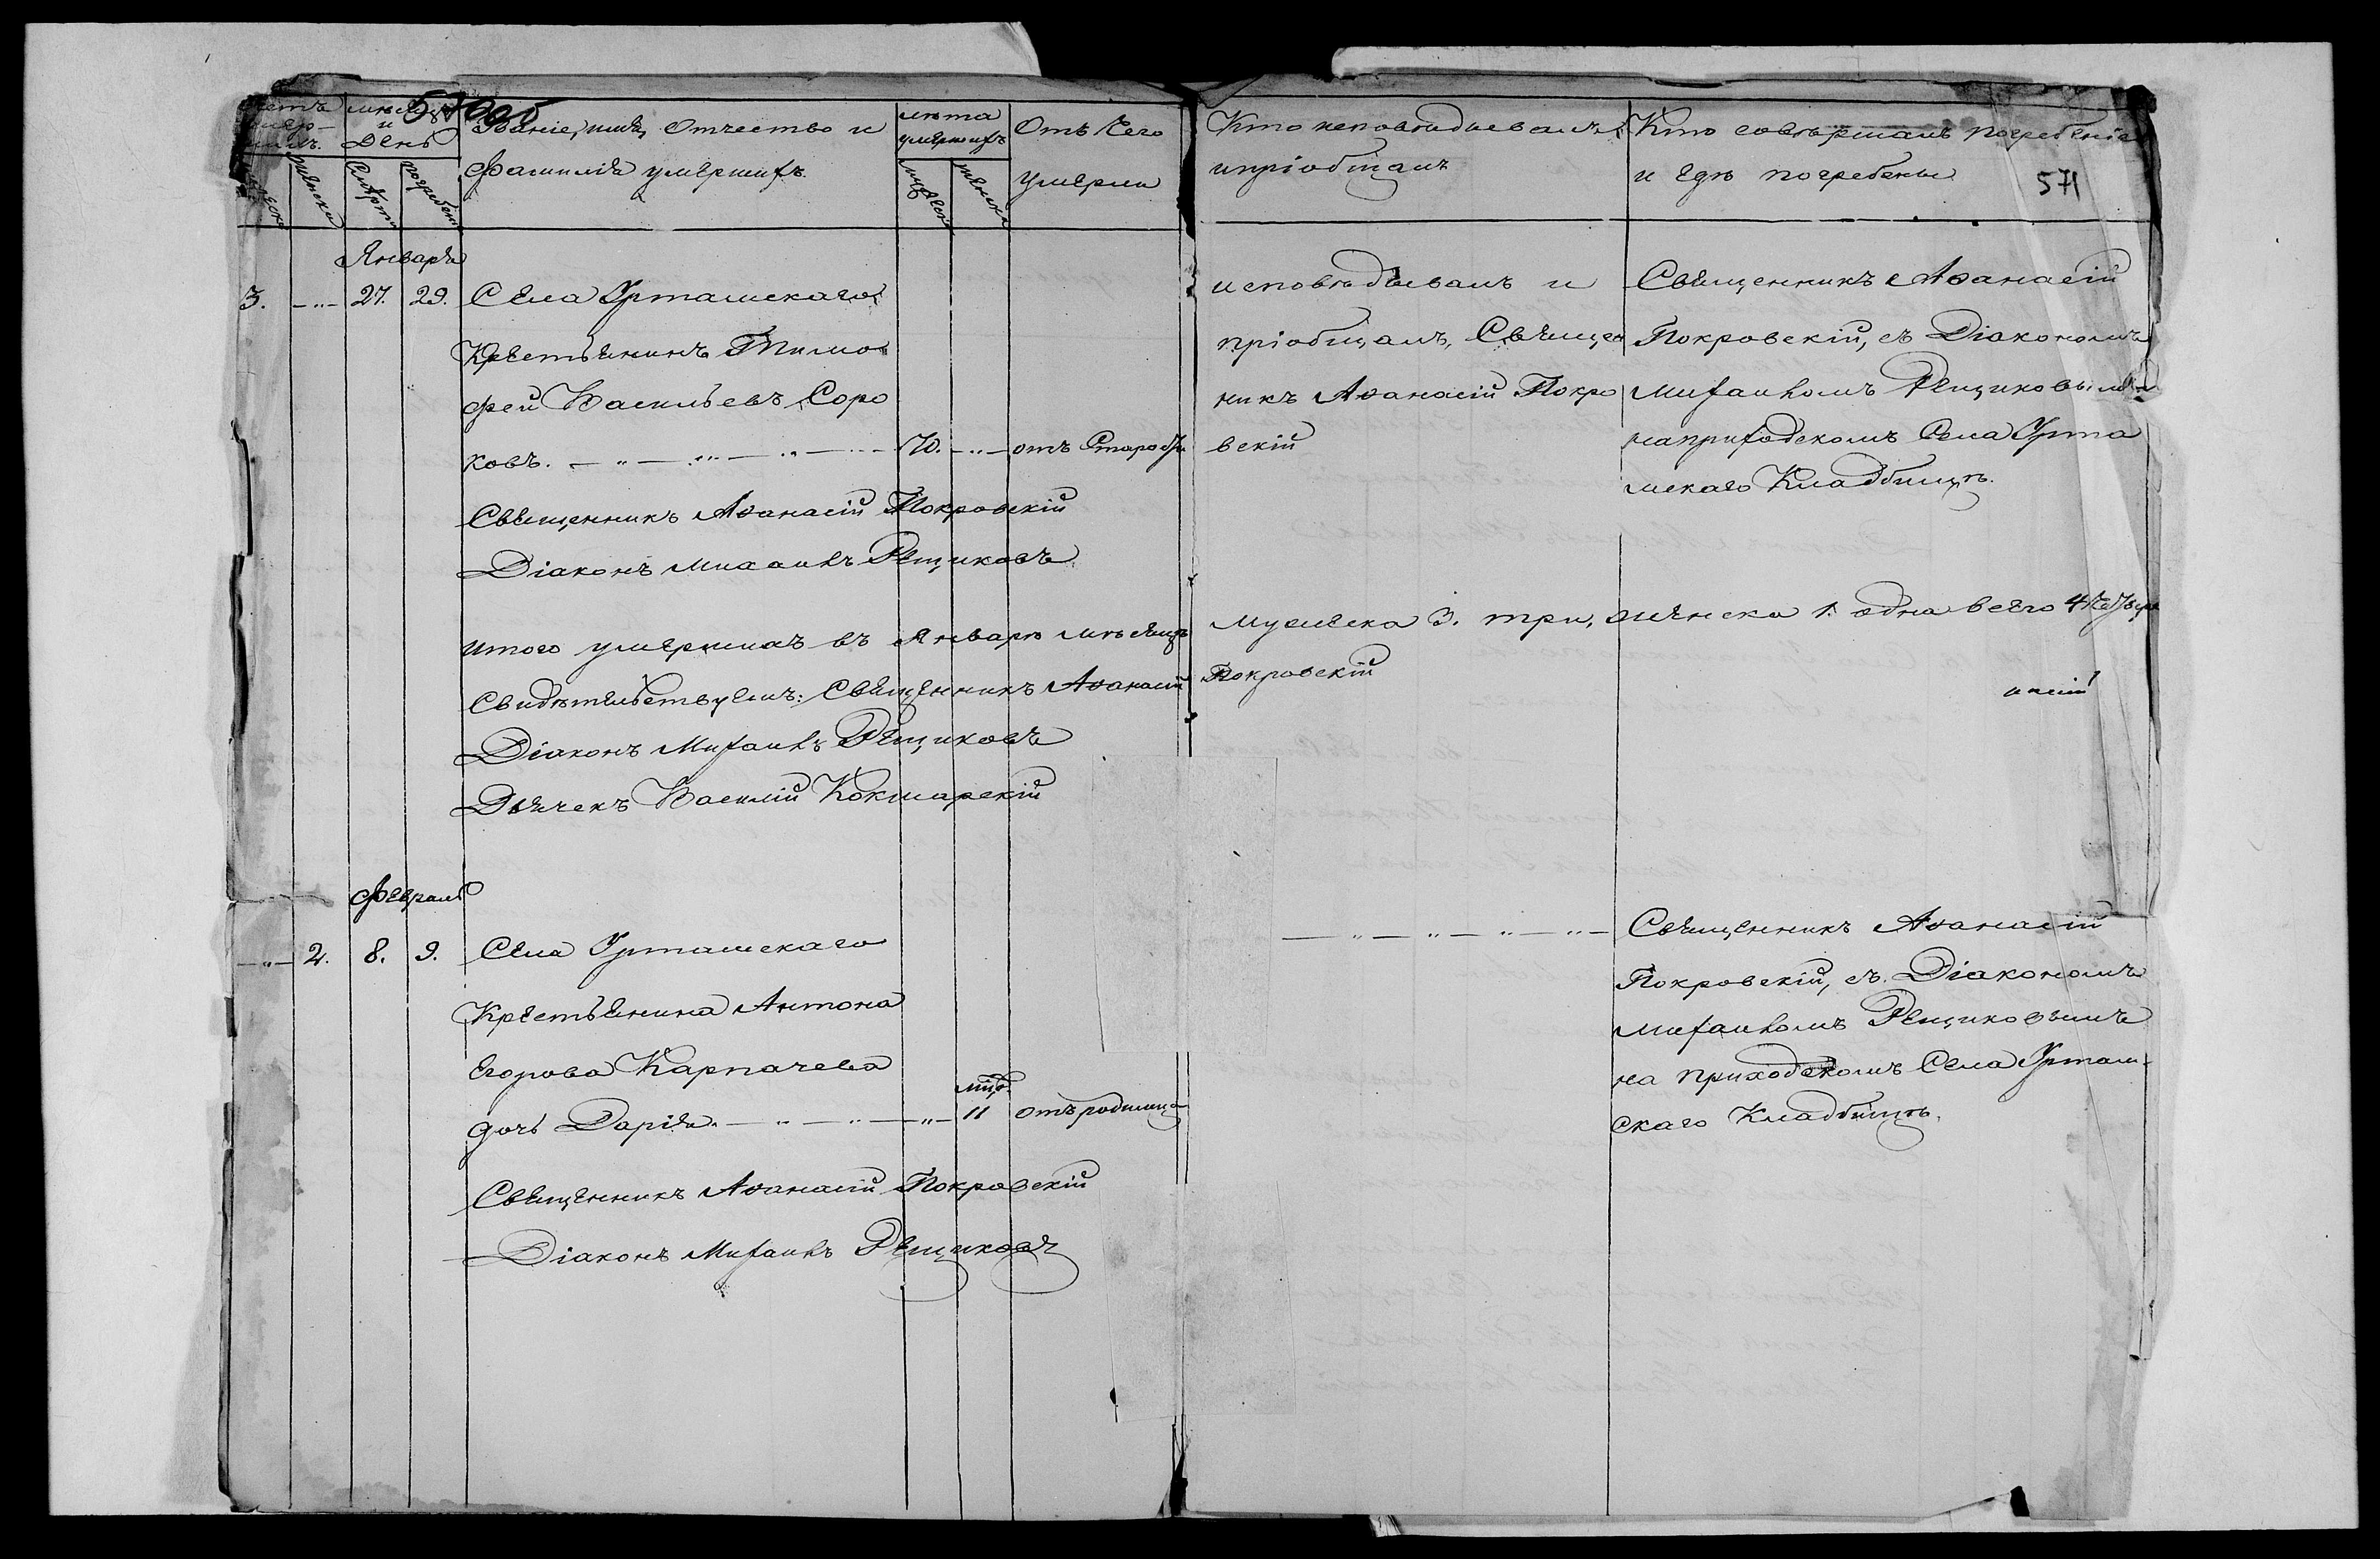 Счетъ умер-шихъ.
мужеска
женска
Мѣсяцъ и День
Смерти
погребенія
570об
Званіе, имя, Отчество и
фамилія умершихъ.
лѣта умершихъ
мужеск
женска
Отъ Чего
умерли
Январь
3. —„— 27. 29. Села Урташскаго
Крестьянинъ Тимо
фей Васильевъ Соро
ковъ. — „ — „ — „ — 70. —„— отъ Старости
Священникъ Аѳанасій Покровскій
Діаконъ Михаилъ Рещиковъ
итого умершихъ въ Январѣ мѣсяцѣ
Свидѣтельствуемъ: Священникъ Аѳанасій
Діаконъ Михаилъ Рещиковъ
Дьячекъ Василій Кокшарскій
Февраль
—„— 2. 8. 9. Села Урташскаго
Крестьянина Антона
Егорова Карпачева
мѣс.
дочь Дарія. — „ — „ — „ — 11 отъ родимца
Священникъ Аѳанасій Покровскій
Діаконъ Михаилъ Рещиковъ
Кто исповѣдывалъ
и пріобщалъ
Кто совершалъ погребеніе
и гдѣ погребены
571
исповѣдывалъ и
пріобщалъ, Священ
никъ Аѳанасій Покро
вскій
Священникъ Аѳанасій
Покровскій, съ Діакономъ
Михаиломъ Рещиковымъ
на приходскомъ Села Урта
шскаго Кладбищѣ.
Мужеска 3. три, женска 1. одна всего 4 четыре
Покровскій
— „ — „ — „ — „ —
Священникъ Аѳанасій
Покровскій, съ Діакономъ
Михаиломъ Рещиковымъ
на приходскомъ Села Урташ-
скаго Кладбищѣ.